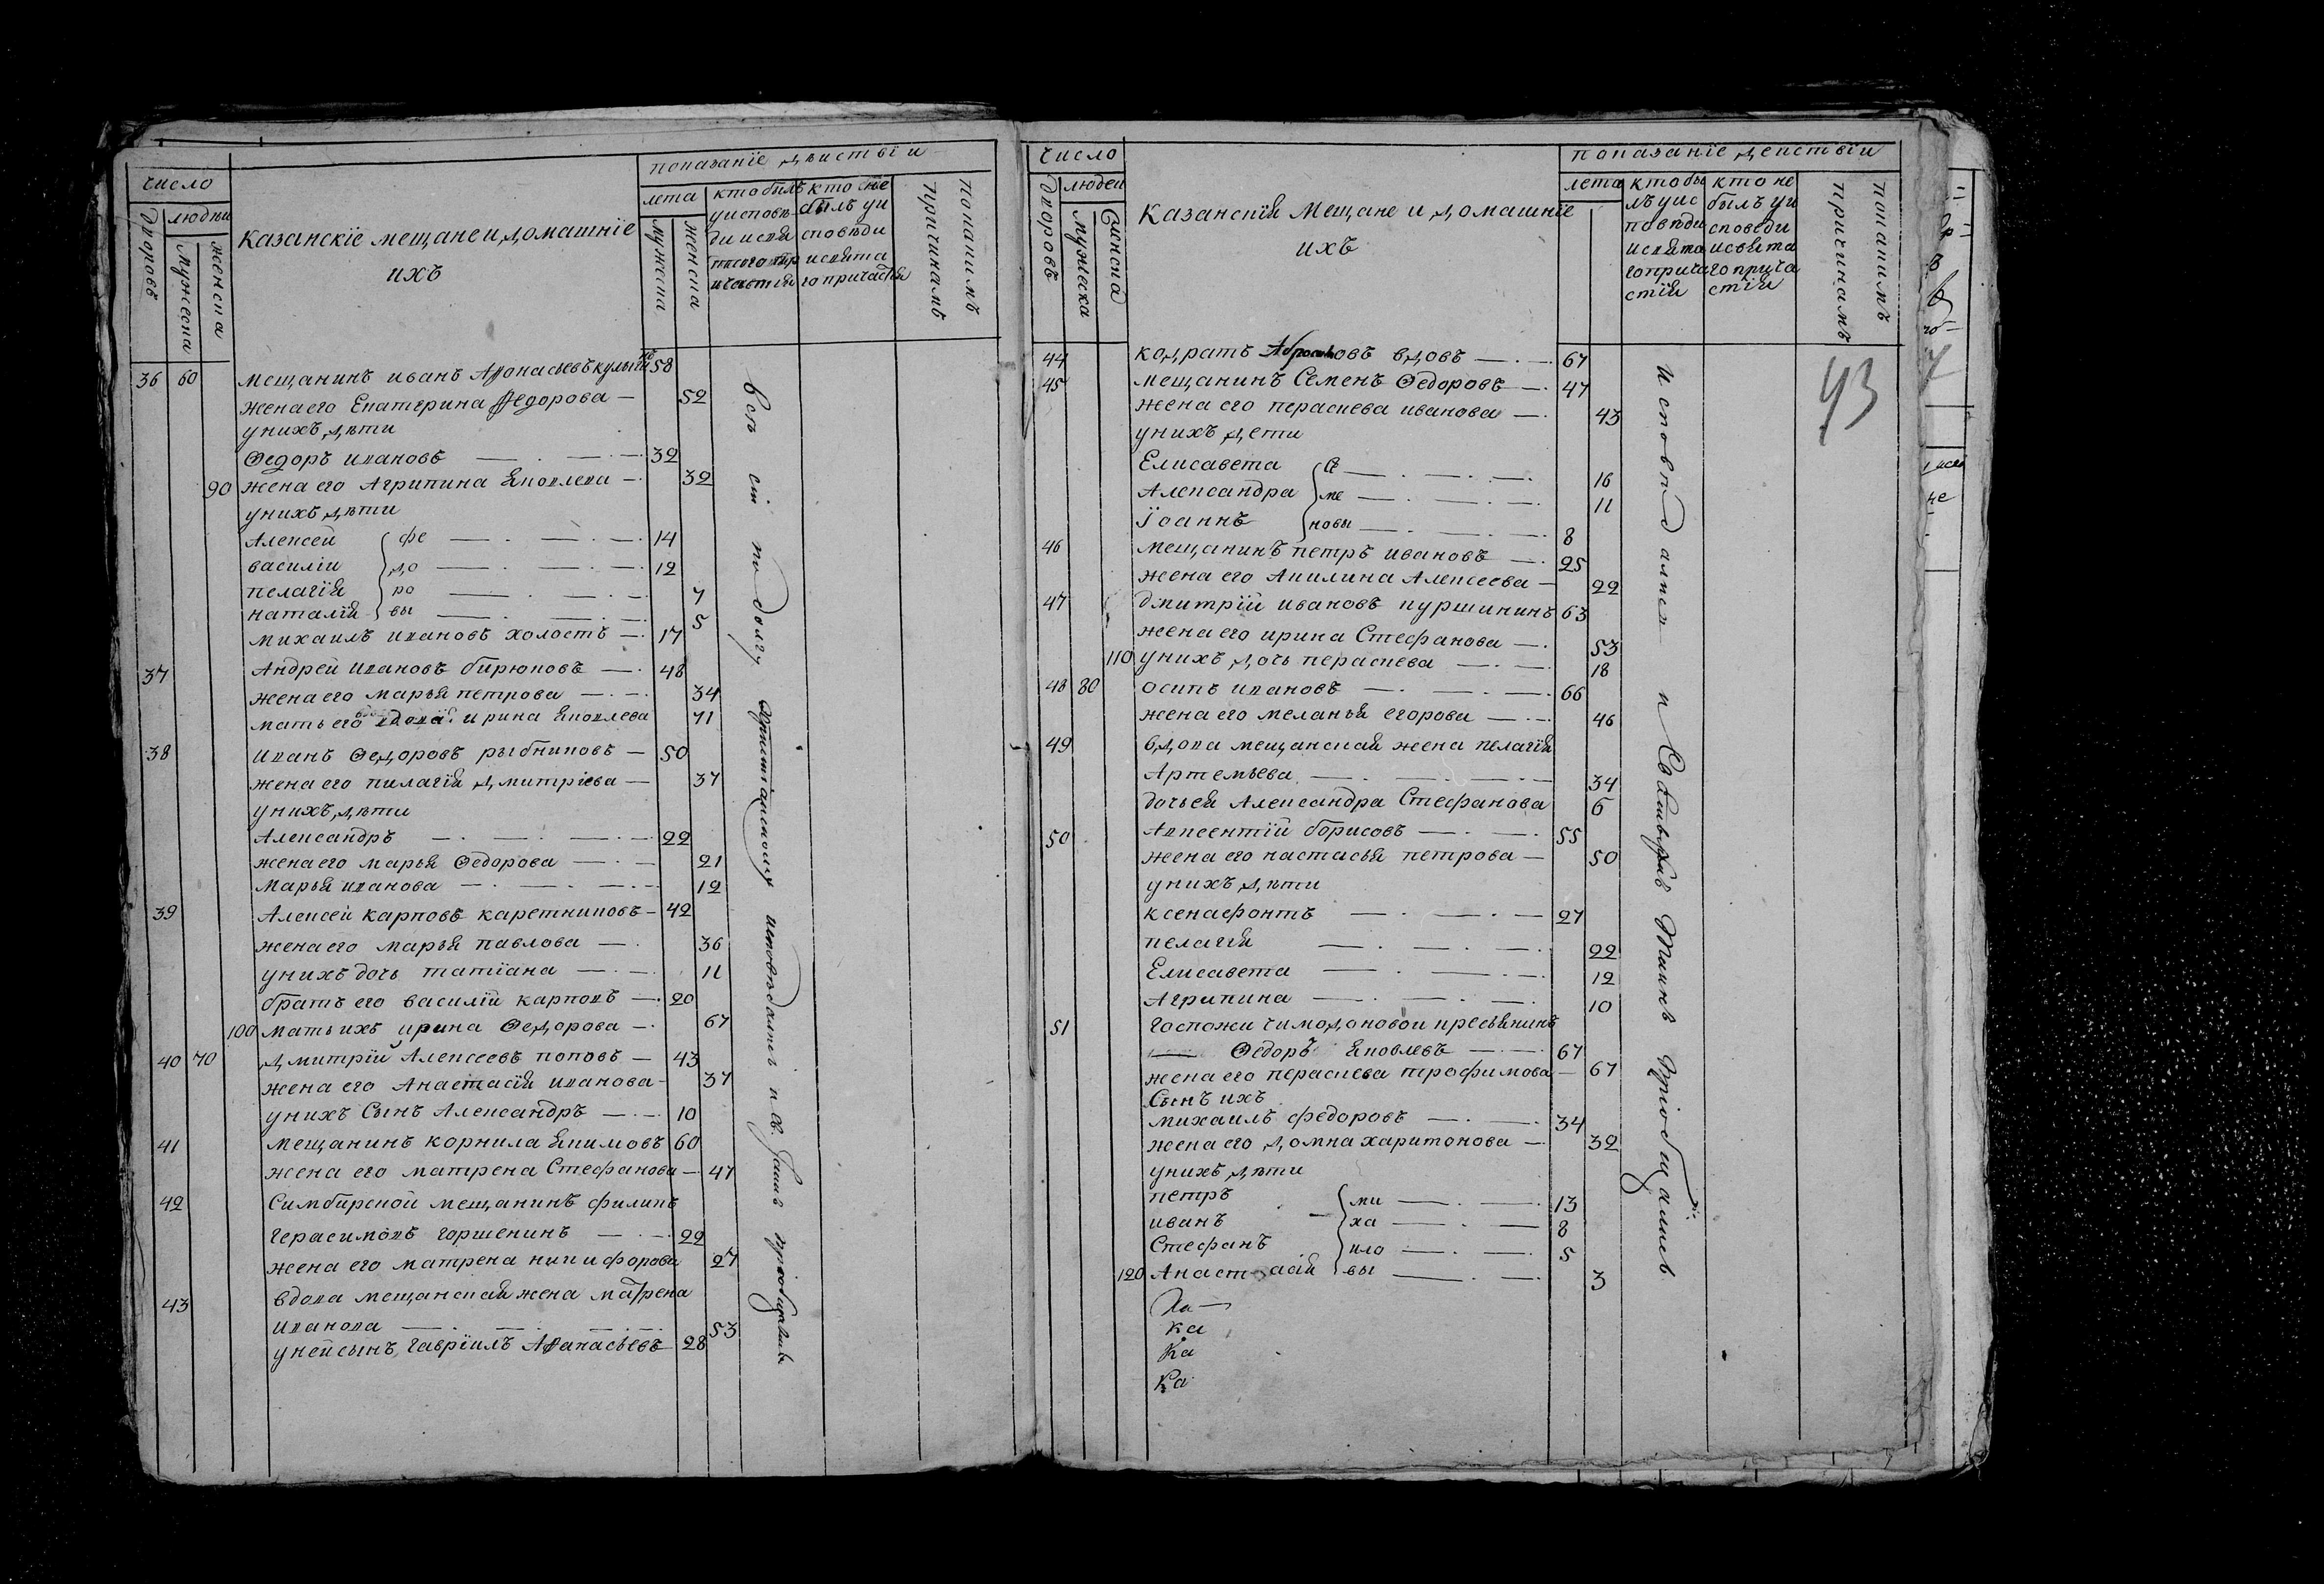 число
показание дѣиствіи
дворовъ
людеи
мужеска
женска
казанскіе мещане и домашніе
ихъ
лета
мужеска
женска
кто былъ
у исповѣ
ди и свя
таго пр
ичастия
кто не
былъ у и
сповѣди
и свята
го причастія
покакимъ
причинамъ
36 60 мещанинъ иванъ Афонасьевъ 58
жена его Екатерина Федорова — 52
у нихъ дѣти
Ѳедоръ ивановъ — 32
90 жена его Агрипина Яковлева — 32
у нихъ дѣти
Алексеи фе — 14
василіи до — 12
пелагія ро — 7
наталія вы — 5
михаилъ ивановъ холостъ — 17
37 Андреи ивановъ бирюковъ — 48
жена его марья петрова — 34
мать его вдова ирина Яковлева 71
38 иванъ Ѳедоровъ рыбниковъ — 50
жена его пилагія дмитріева — 37
у нихъ дѣти
Александръ — 22
жена его марья Ѳедорова — 21
марья иванова — 12
39 Алексеи карповъ каретниковъ — 42
жена его марья павлова — 36
у нихъ дочь татіана — 11
братъ его василіи карповъ — 20
100 мать ихъ ирина Ѳедорова — 67
40 70 дмитріи Алексеевъ поповъ — 43
жена его Анастасія иванова — 37
у нихъ Сынъ Александръ — 10
41 мещанинъ корнила Якимовъ 60
жена его матрена Стефанова — 47
42 Симбирской мещанинъ филипъ
герасимовъ горшенинъ — 22
жена его матрена никифорова 27
43 вдова мещанская жена матрена
иванова — 53
у неи сынъ гавріилъ Афанасьевъ 28
всѣ сіи по долгу христіанскому исповѣдались и Св. Таинъ приобщались
число
показаніе деиствіи
дворовъ
людеи
мужеска
женска
казанскія мещане и домашніе
ихъ
лета
кто бы
лъ у ис
повѣди
и свята
го прича
стія
кто не
былъ у и
споведи
и свята
го прича
стіи
покакимъ
причинамъ
93
44 кодратъ вдовъ — 67
45 мещанинъ Семенъ Ѳедоровъ — 47
жена его параскева иванова — 43
у нихъ дети
Елисавета Се — 16
Александра ме — 11
Іоаннъ новы — 8
46 мещанинъ петръ ивановъ — 25
жена его Акилина Алексеева — 22
47 дмитріи ивановъ куршининъ 63
жена его ирина Стефанова — 53
110 у нихъ дочь пераскева — 18
48 80 осипъ ивановъ — 66
жена его меланья егорова — 46
49 вдова мещанская жена пелагія
Артемьева — 34
дочь ея Александра Стефанова 6
50 Авксентіи борисовъ — 55
жена его настасья петрова — 50
у нихъ дѣти
ксенафонтъ — 27
пелагія — 22
Елисавета — 12
Агрипина — 10
51 госпожи чимодановои кресьянинъ
— Ѳедоръ Яковлевъ — 67
жена его пераскева трофимова — 67
Сынъ ихъ
михаилъ федоровъ — 34
жена его домна харитонова — 32
у нихъ дѣти
петръ ми — 13
иванъ ха — 8
Стефанъ ило — 5
120 Анастасія вы — 3
ка
ка
ка
исповѣдались и Святыхъ Таинъ приобщались